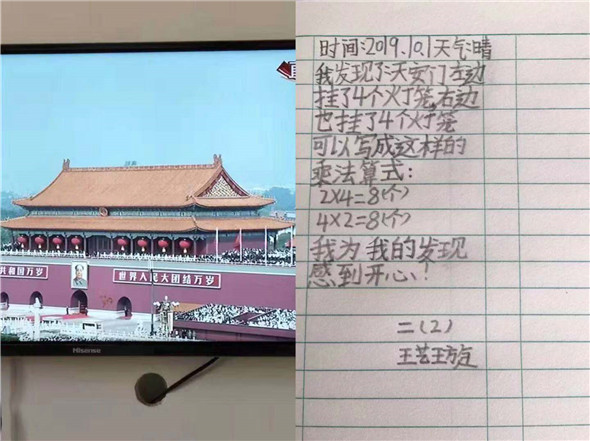 共和国万岁
世界人民大团结万岁
Hisense
时间:2019.10.1天气:晴
我发现了:天安门左边
挂了4个火灯笼,右边
也挂了4个火灯笼
可以写成这样的
乘法算式:
2×4=8(个)
4×2=8(个)
我为我的发现
感到开心!
二(2)